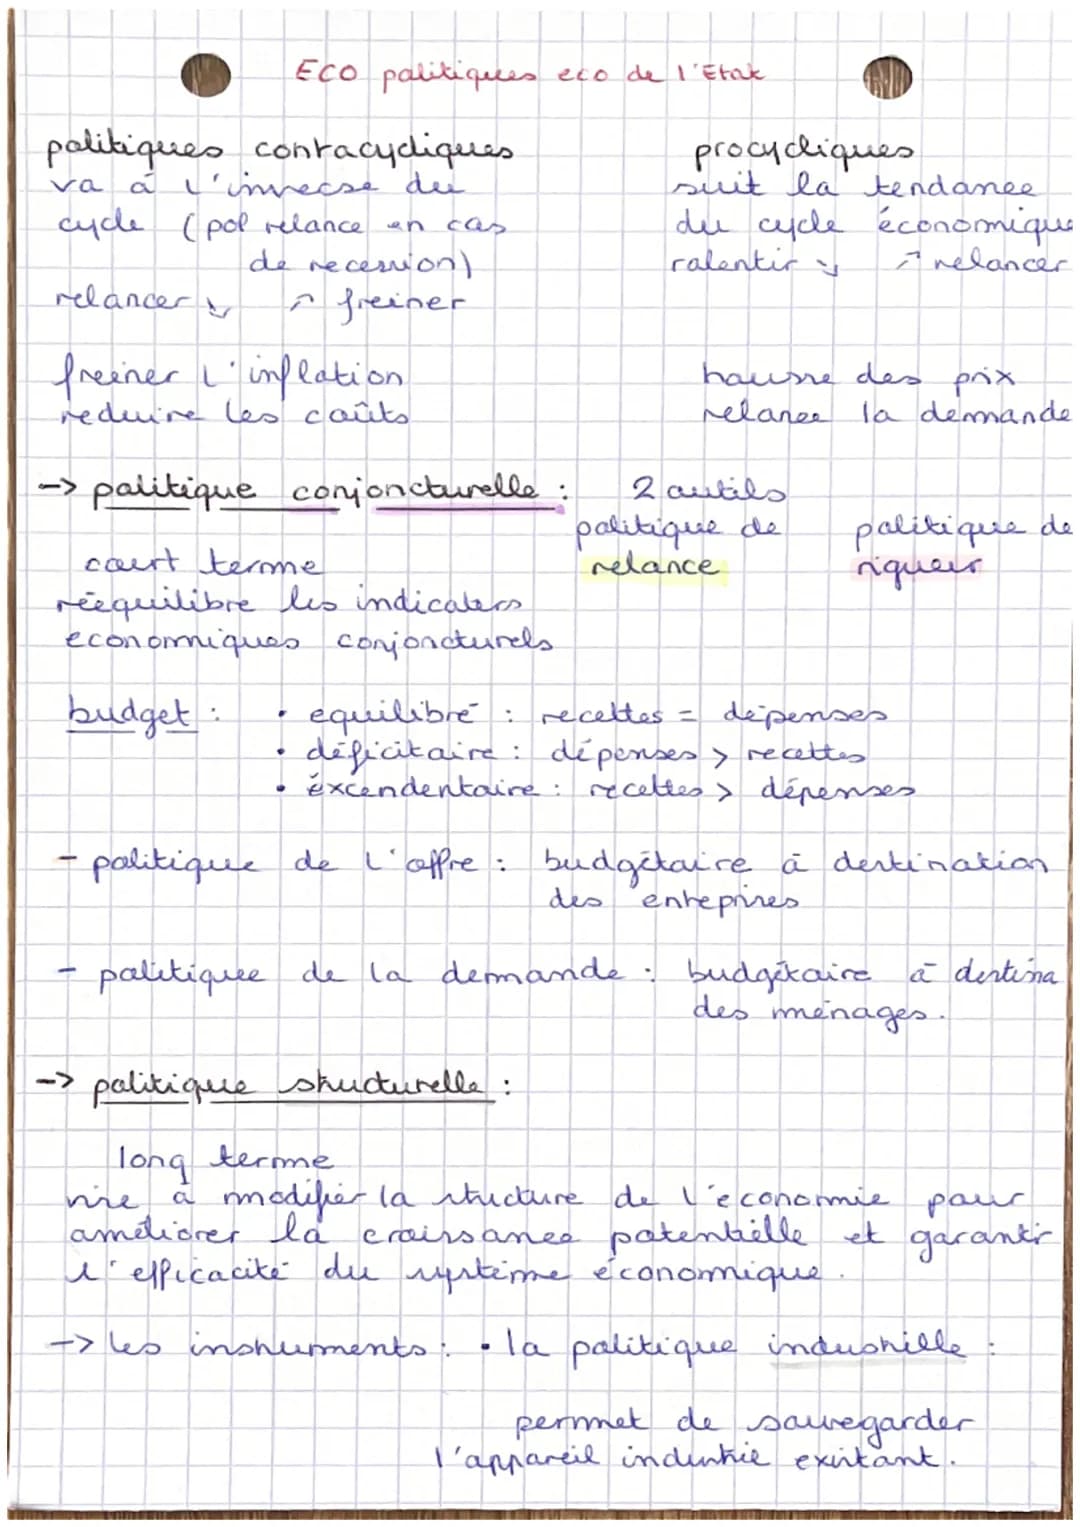 ECO politiques eco de l'Etat
politiques contracycliques
va à l'inverse du
cycle (pol relance en cas
de recession)
relancer ↘ ↗ freiner
procycliques
suit la tendance
du cycle économique
ralentir ↘ ↗ relancer
freiner l'inflation
reduire les coûts
hausse des prix
relance la demande
-> politique conjoncturelle : 2 outils
politique de relance
politique de rigueur
court terme
rééquilibre les indicaters
economiques conjoncturels
budget : • equilibré : recettes = dépenses
• déficitaire : dépenses > recettes
• éxcendentaire : recettes > dépenses
- politique de l'offre : budgétaire à destination
des entreprises
- politique de la demande : budgétaire à destina
des ménages.
-> politique structurelle :
long terme
vise à modifier la structure de l'économie pour
améliorer la croissance potentielle et garantir
l'efficacité du système économique.
-> les instruments : • la politique industrille :
permet de sauvegarder
l'appareil industrie existant.